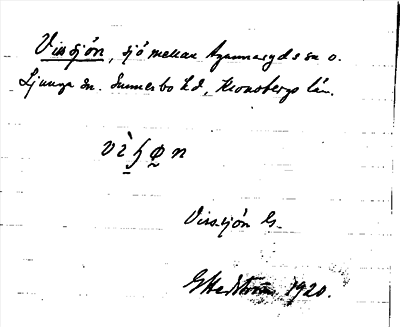 Vissjön, sjö mellan Agunnaryds sn o.
Ljunga sn. Sunnerbo hd, Kronobergs län.
Vissjön G.
GHedström 1920.